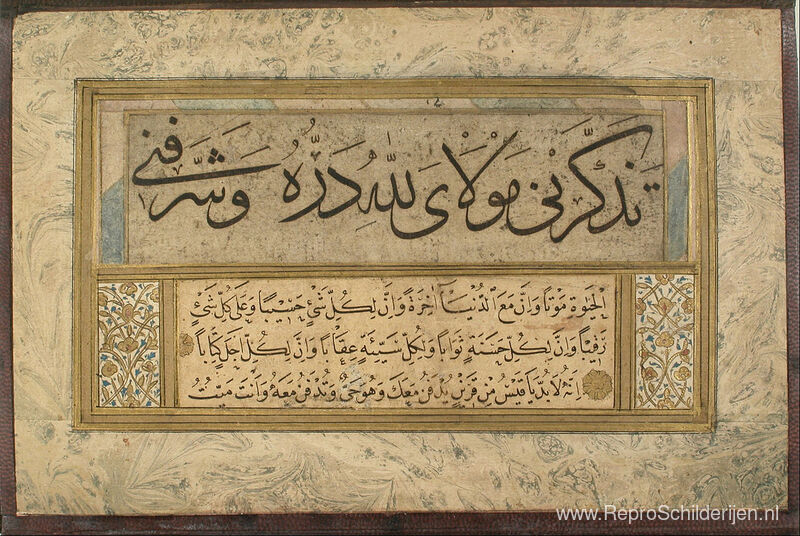 تذكّرني مولاي لله درّه وشرّفني
الحيوة موتا وانّ مع الدنيا اخرة وانّ لكلّ شئ حسيبا وعلى كلّ شئ
رقيبا وانّ لكلّ حسنة ثوابا ولكلّ سيئة عقابا وانّ لكلّ اجل كتابا
انه لا بدّ يا قيس من قرين يدفن معك وهو حيّ وتدفن معه وانت ميت
www.ReproSchilderijen.nl